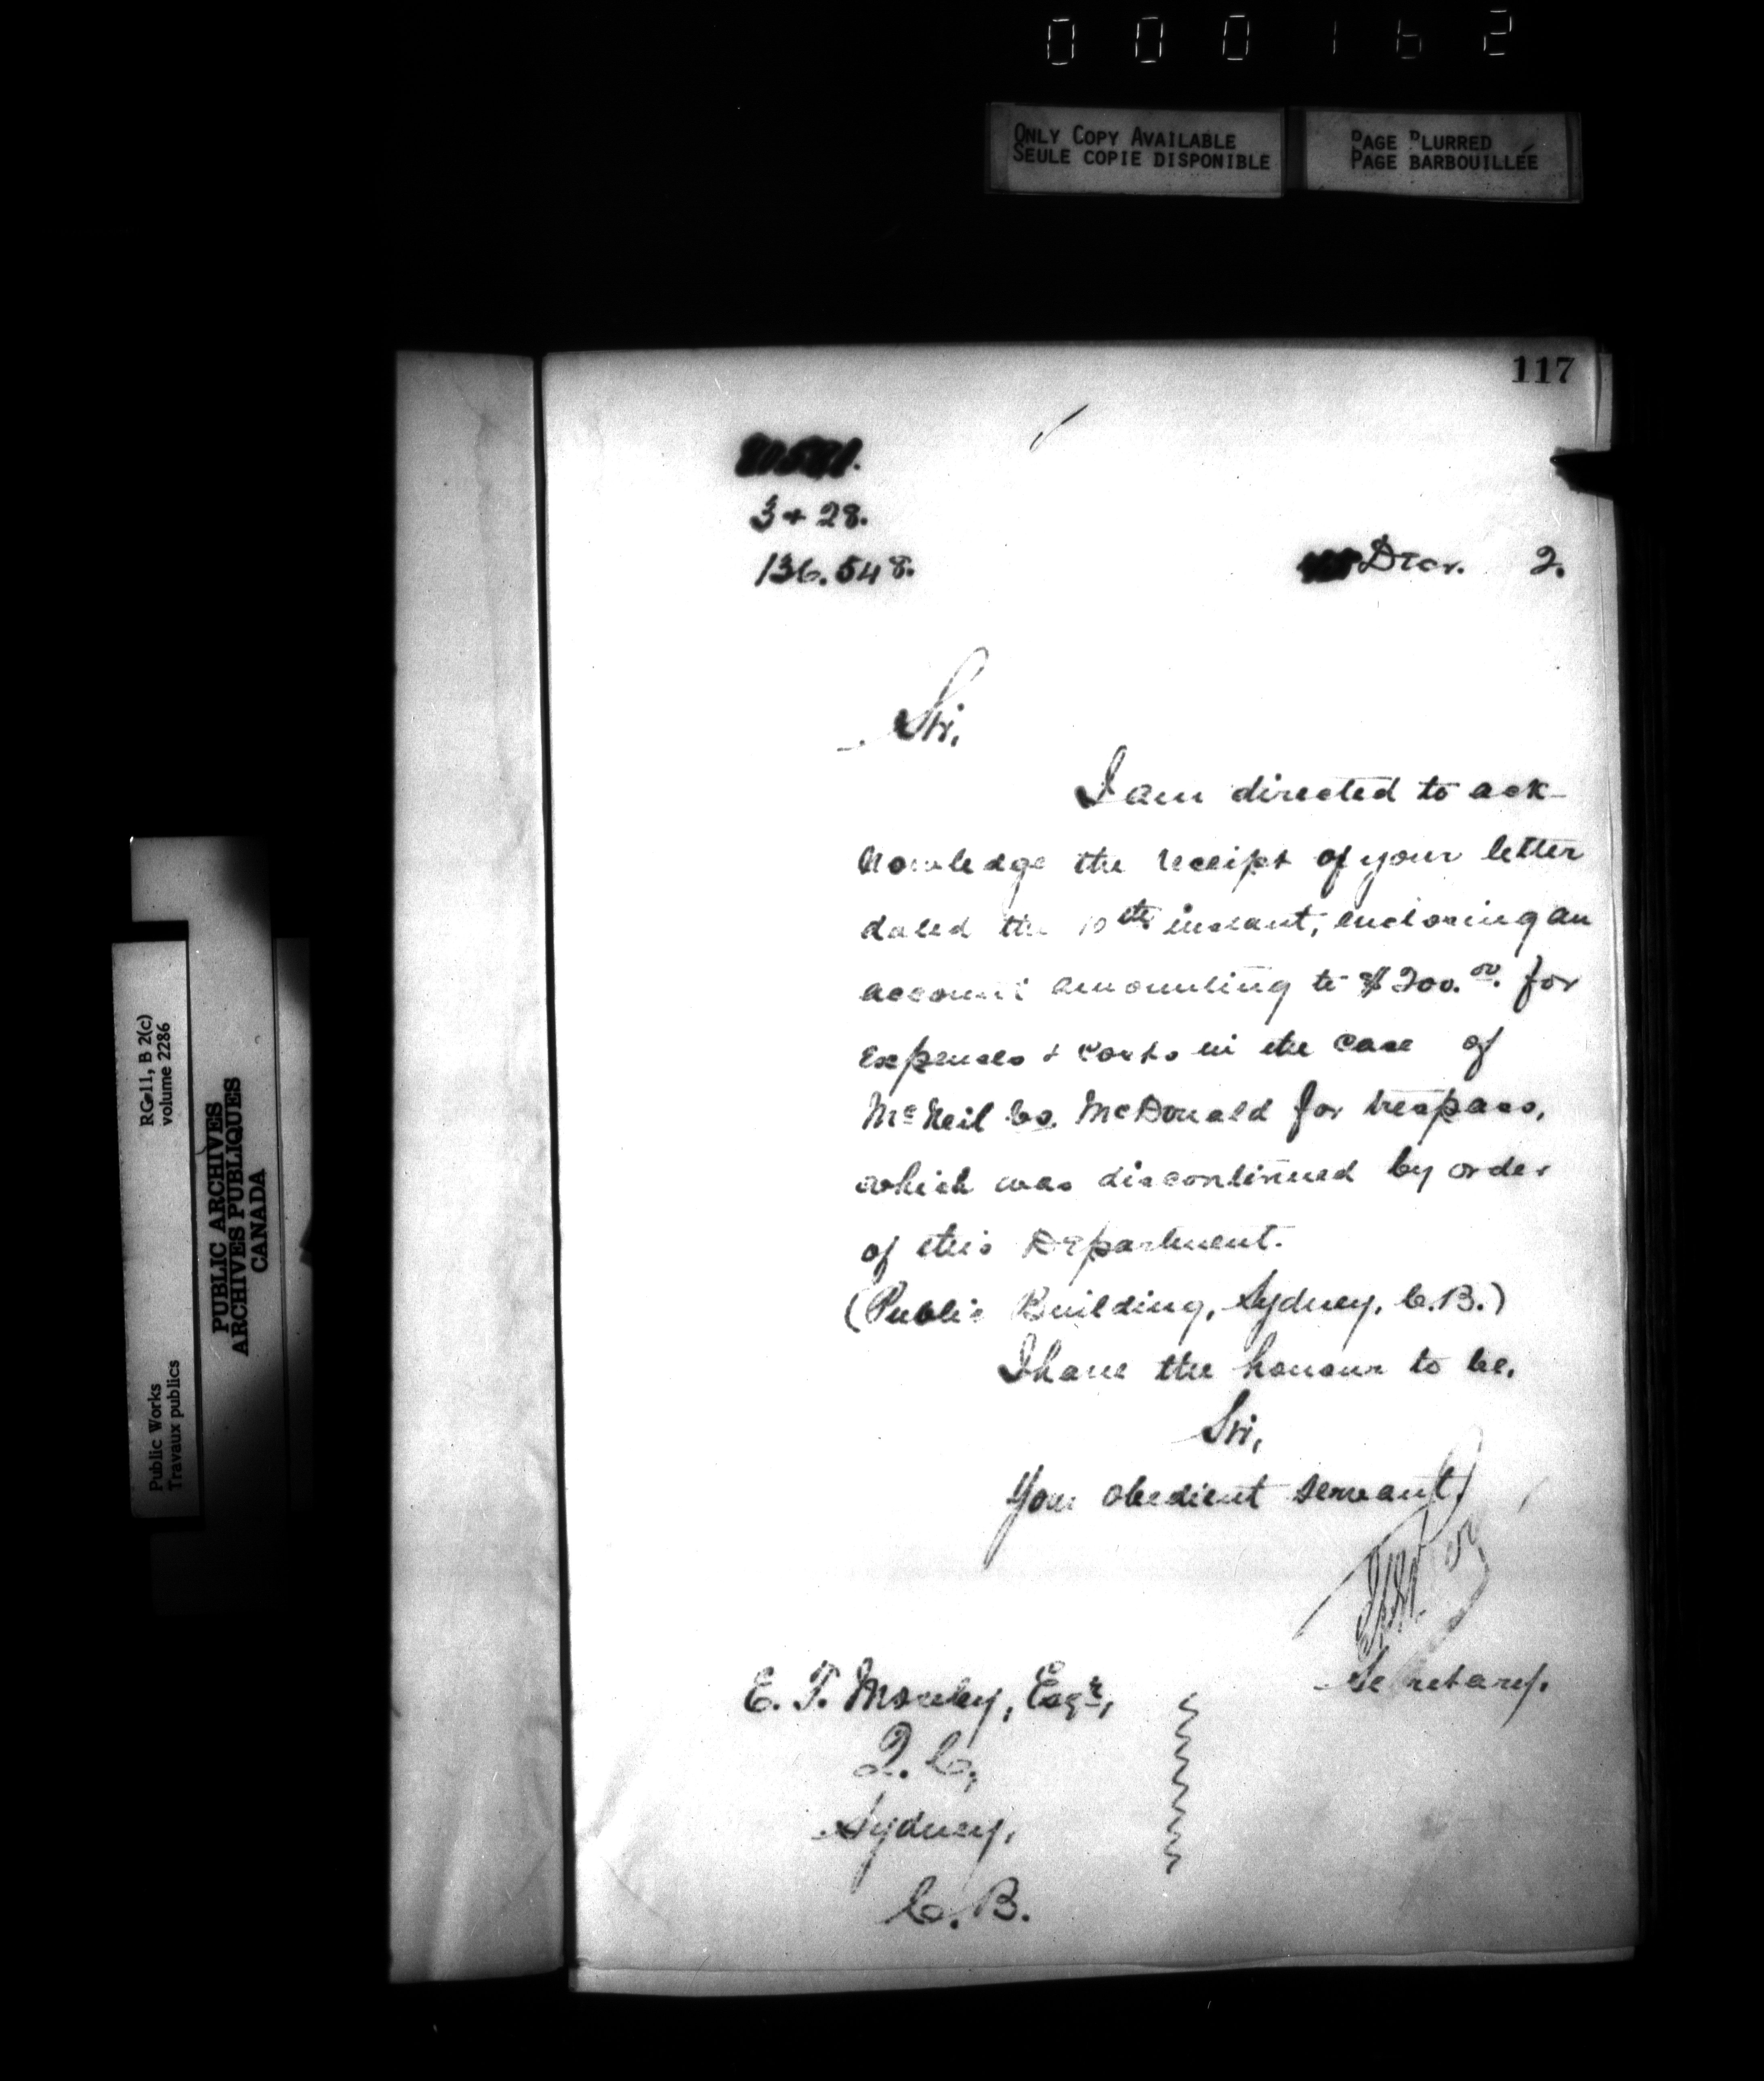 000162
ONLY COPY AVAILABLE
SEULE COPIE DISPONIBLE
PAGE BLURRED
PAGE BARBOUILLÉE
117
3 + 28.
136.548.
Decr. 2.
Sir,
I am directed to ack-
nowledge the receipt of your letter
dated the 10th instant, enclosing an
account amounting to $200.00. for
expenses + costs in the case of
McNeil vs. McDonald for trespass,
which was discontinued by order
of this Department.
(Public Building, Sydney, C.B.)
I have the honour to be,
Sir,
Your obedient servant,
Secretary.
E. T. Moseley, Esqr,
Q. C,
Sydney,
C. B.
RG 11, B 2(c)
volume 2286
PUBLIC ARCHIVES
ARCHIVES PUBLIQUES
CANADA
Public Works
Travaux publics